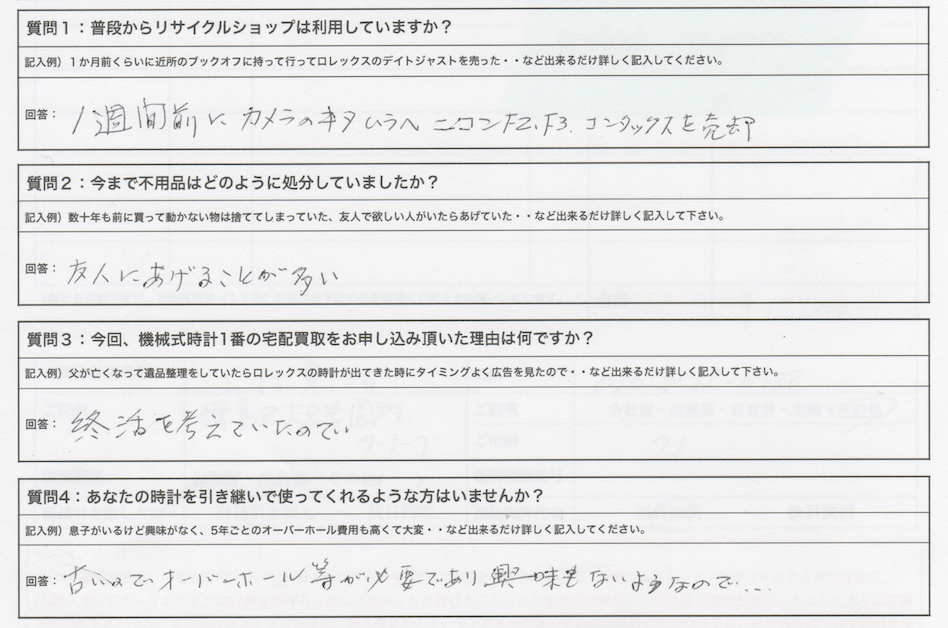 質問1：普段からリサイクルショップは利用していますか？
記入例）1か月前くらいに近所のブックオフに持って行ってロレックスのデイトジャストを売った・・など出来るだけ詳しく記入してください。
回答： 1週間前に カメラのキタムラへ ニコンF2、F3、コンタックスを売却
質問2：今まで不用品はどのように処分していましたか？
記入例）数十年も前に買って動かない物は捨ててしまっていた、友人で欲しい人がいたらあげていた・・など出来るだけ詳しく記入して下さい。
回答： 友人にあげることが多い
質問3：今回、機械式時計1番の宅配買取をお申し込み頂いた理由は何ですか？
記入例）父が亡くなって遺品整理をしていたらロレックスの時計が出てきた時にタイミングよく広告を見たので・・など出来るだけ詳しく記入して下さい。
回答： 終活を考えていたので
質問4：あなたの時計を引き継いで使ってくれるような方はいませんか？
記入例）息子がいるけど興味がなく、5年ごとのオーバーホール費用も高くて大変・・など出来るだけ詳しく記入してください。
回答： 古いので オーバーホール等が必要であり 興味もないようなので…